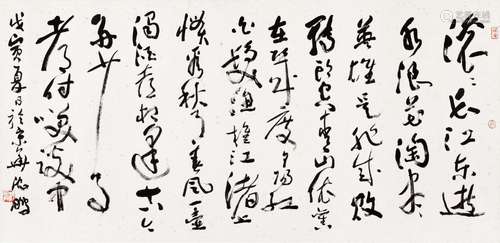 滚滚长江东逝
水浪花淘尽
英雄是非成败
转头空青山依旧
在几度夕阳红
白发渔樵江渚上
惯看秋月春风一壶
浊酒喜相逢古今
多少事
都付笑谈中
戊寅夏日於京華